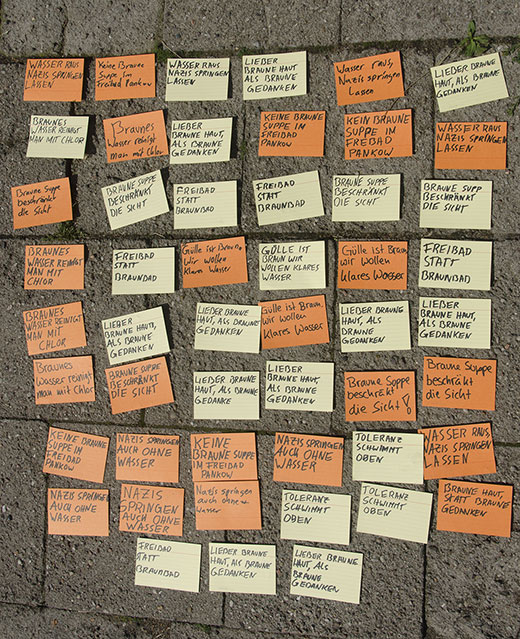 WASSER RAUS
NAZIS SPRINGEN
LASSEN
Keine Braune
Suppe im
Freibad Pankow
WASSER RAUS
NAZIS SPRINGEN
LASSEN
LIEBER
BRAUNE HAUT,
ALS BRAUNE
GEDANKEN
Wasser raus,
Nazis springen
Lassen
LIEBER BRAUNE
HAUT, ALS BRAUNE
GEDANKEN
BRAUNES
WASSER REINIGT
MAN MIT CHLOR
Braunes
Wasser reinigt
Man mit Chlor
LIEBER
BRAUNE HAUT,
ALS BRAUNE
GEDANKEN
KEINE BRAUNE
SUPPE IM
FREIBAD
PANKOW
KEIN BRAUNE
SUPPE IM
FREBAD
PANKOW
WASSER RAUS
NAZIS SPRINGEN
LASSEN
Braune Suppe
beschränkt
die Sicht
BRAUNE SUPPE
BESCHRÄNKT
DIE SICHT
FREIBAD
STATT
BRAUNBAD
FREIBAD
STATT
BRAUNBAD
BRAUNE SUPPE
BESCHRÄNKT
DIE SICHT
BRAUNE SUPP
BESCHRÄNKT
DIE SICHT
BRAUNES
WASSER REINIGT
MAN MIT
CHLOR
FREIBAD
STATT
BRAUNBAD
Gülle ist Braun
Wir wollen
Klares Wasser
GÜLLE IST
BRAUN WIR
WOLLEN KLARES
WASSER
Gülle ist Braun
wir wollen
Klares Wasser
FREIBAD
STATT
BRAUNBAD
BRAUNES
WASSER REINIGT
MAN MIT
CHLOR
LIEBER
BRAUNE HAUT,
ALS BRAUNE
GEDANKEN
LIEBER BRAUNE
HAUT, ALS BRAUNE
GEDANKEN
Gülle ist Braun
wir wollen
Klares Wasser
LIEBER BRAUNE
HAUT, ALS
BRAUNE
GEDANKEN
LIEBER BRAUNE
HAUT, ALS
BRAUNE
GEDANKEN
Braunes
Wasser reinigt
man mit Chlor
BRAUNE SUPPE
BESCHRÄNKT
DIE SICHT
LIEBER BRAUNE
HAUT, ALS BRAUNE
GEDANKE
LIEBER
BRAUNE HAUT,
ALS BRAUNE
GEDANKEN
Braune Suppe
beschrekt
die Sicht!
Braune Suppe
beschräkt
die Sicht
KEINE BRAUNE
SUPPE IN
FREIBAD
PANKOW
NAZIS SPRINGEN
AUCH OHNE
WASSER
KEINE
BRAUNE SUPPE
IM FREIBAD
PANKOW
NAZIS SPRINGEN
AUCH OHNE
WASSER
TOLERANZ
SCHWIMMT
OBEN
WASSER RAUS,
NAZIS SPRINGEN
LASSEN
NAZIS SPRINGEN
AUCH OHNE
WASSER
NAZIS
SPRINGEN
AUCH OHNE
WASSER
Nazis springen
auch ohne
Wasser
TOLERANZ
SCHWIMMT
OBEN
TOLERANZ
SCHWIMMT
OBEN
BRAUNE HAUT,
STATT BRAUNE
GEDANKEN
FREIBAD
STATT
BRAUNBAD
LIEBER BRAUNE
HAUT, ALS BRAUNE
GEDANKEN
LIEBER BRAUNE
HAUT, ALS
BRAUNE
GEDANKEN